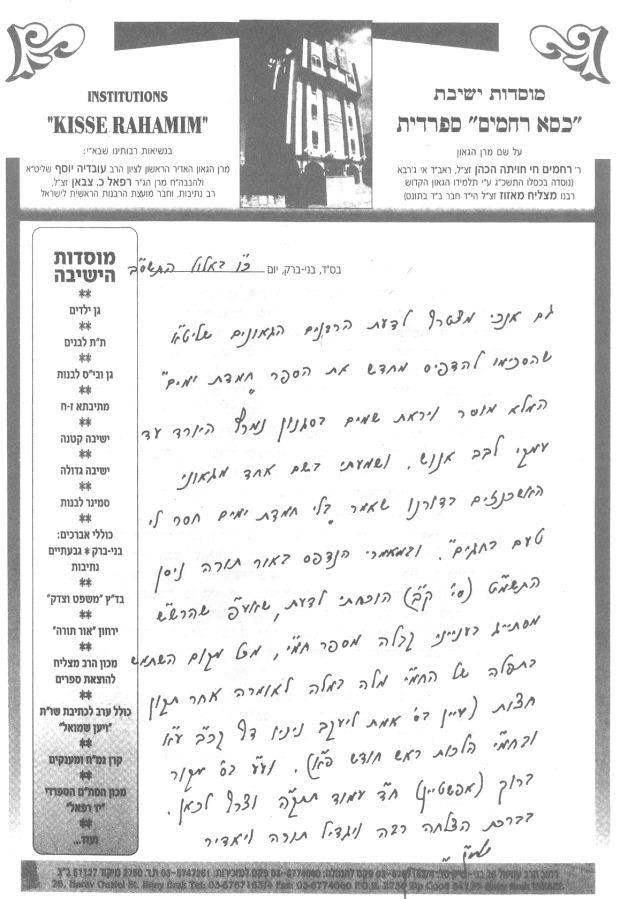 INSTITUTIONS
"KISSE RAHAMIM"
בנשיאות רבותינו שבא"י:
מרן הגאון האדיר הראשון לציון הרב עובדיה יוסף שליט"א
ולהבבה"ח מרן הגר"ר רפאל כ. צבאן זצ"ל,
רב נתיבות, וחבר מועצת הרבנות הראשית לישראל
מוסדות ישיבת
"כסא רחמים" ספרדית
על שם מרן הגאון
ר' רחמים חי חויתה הכהן זצ"ל, ראב"ד אי ג'רבא
(נוסדה בכסלו התשכ"ג ע"י תלמידו הגאון הקדוש
רבנו מצליח מאזוז זצ"ל הי"ד חבר ב"ד בתונס)
מוסדות
הישיבה
גן ילדים
ת"ת לבנים
גן ובי"ס לבנות
מתיבתא ז-ח
ישיבה קטנה
ישיבה גדולה
סמינר לבנות
כוללי אברכים:
בני-ברק * גבעתיים
נתיבות
בד"ץ "משפט וצדק"
ירחון "אור תורה"
מכון הרב מצליח
להוצאת ספרים
כולל ערב לכתיבת שו"ת
"ויען שמואל"
קרן גמ"ח ומענקים
מכון הסת"ם הספרדי
"יד רפאל"
ועוד...
בס"ד, בני-ברק, יום כ"ו באלול התשס"ב
גם אנכי מצטרף לדעת הרבנים הגאונים שליט"א
שהסכימו להדפיס מחדש את הספר "חמדת ימים"
המלא מוסר ויראת שמים בסגנון נמרץ היורד עד
עמקי לבב אנוש. ושמעתי בשם אחד מגאוני
האשכנזים בדורנו שאמר "בלי חמדת ימים חסר לי
טעם בחגים". ובמאמרי הנדפס באור תורה ניסן
התשמ"ט (סי' קב) הוכחתי לדעת, שאע"פ שהרש"ש
מסתייג בענייני קבלה מספר חמ"י, מכל מקום השתמש
בתפלה של החמ"י מלה במלה לאומרה אחר תקון
חצות (עיין בס' אמת ליעקב ניניו דף קכ"ב ע"א
ובחמ"י הלכות ראש חודש פ"א). וע"ע בס' מקור
ברוך (אפשטיין) ח"ד עמוד תתקה וצרף לכאן.
בברכת הצלחה רבה ויגדיל תורה ויאדיר
רחוב הרב עוזיאל 26 בני-ברק טל: 03-5767163/4 פקס להנהלה: 03-6774060 פקס למזכירות: 03-5747261 ת.ד. 2750 מיקוד 51127 ב"ב
26, Harav Ouziel St. Bnay Brak Tel: 03-6767163/4 Fax: 03-6774060 P.O.B. 2750 Zip Cood